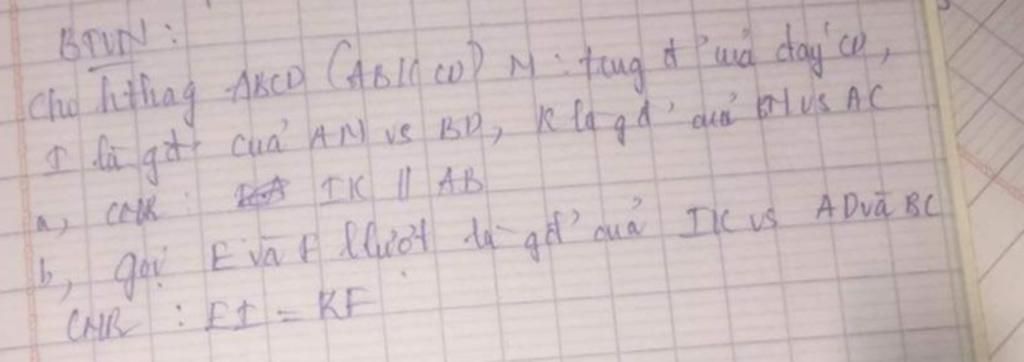 BTVN:
Cho hthag ABCD (AB // CD) M: trug đ' của đáy CD,
I là gđ' của AM vs BD, K là gđ' của BM vs AC
a, CMR: IK // AB
b, gọi E và F lllượt là gđ' của IK vs AD và BC
CMR: EI = KF